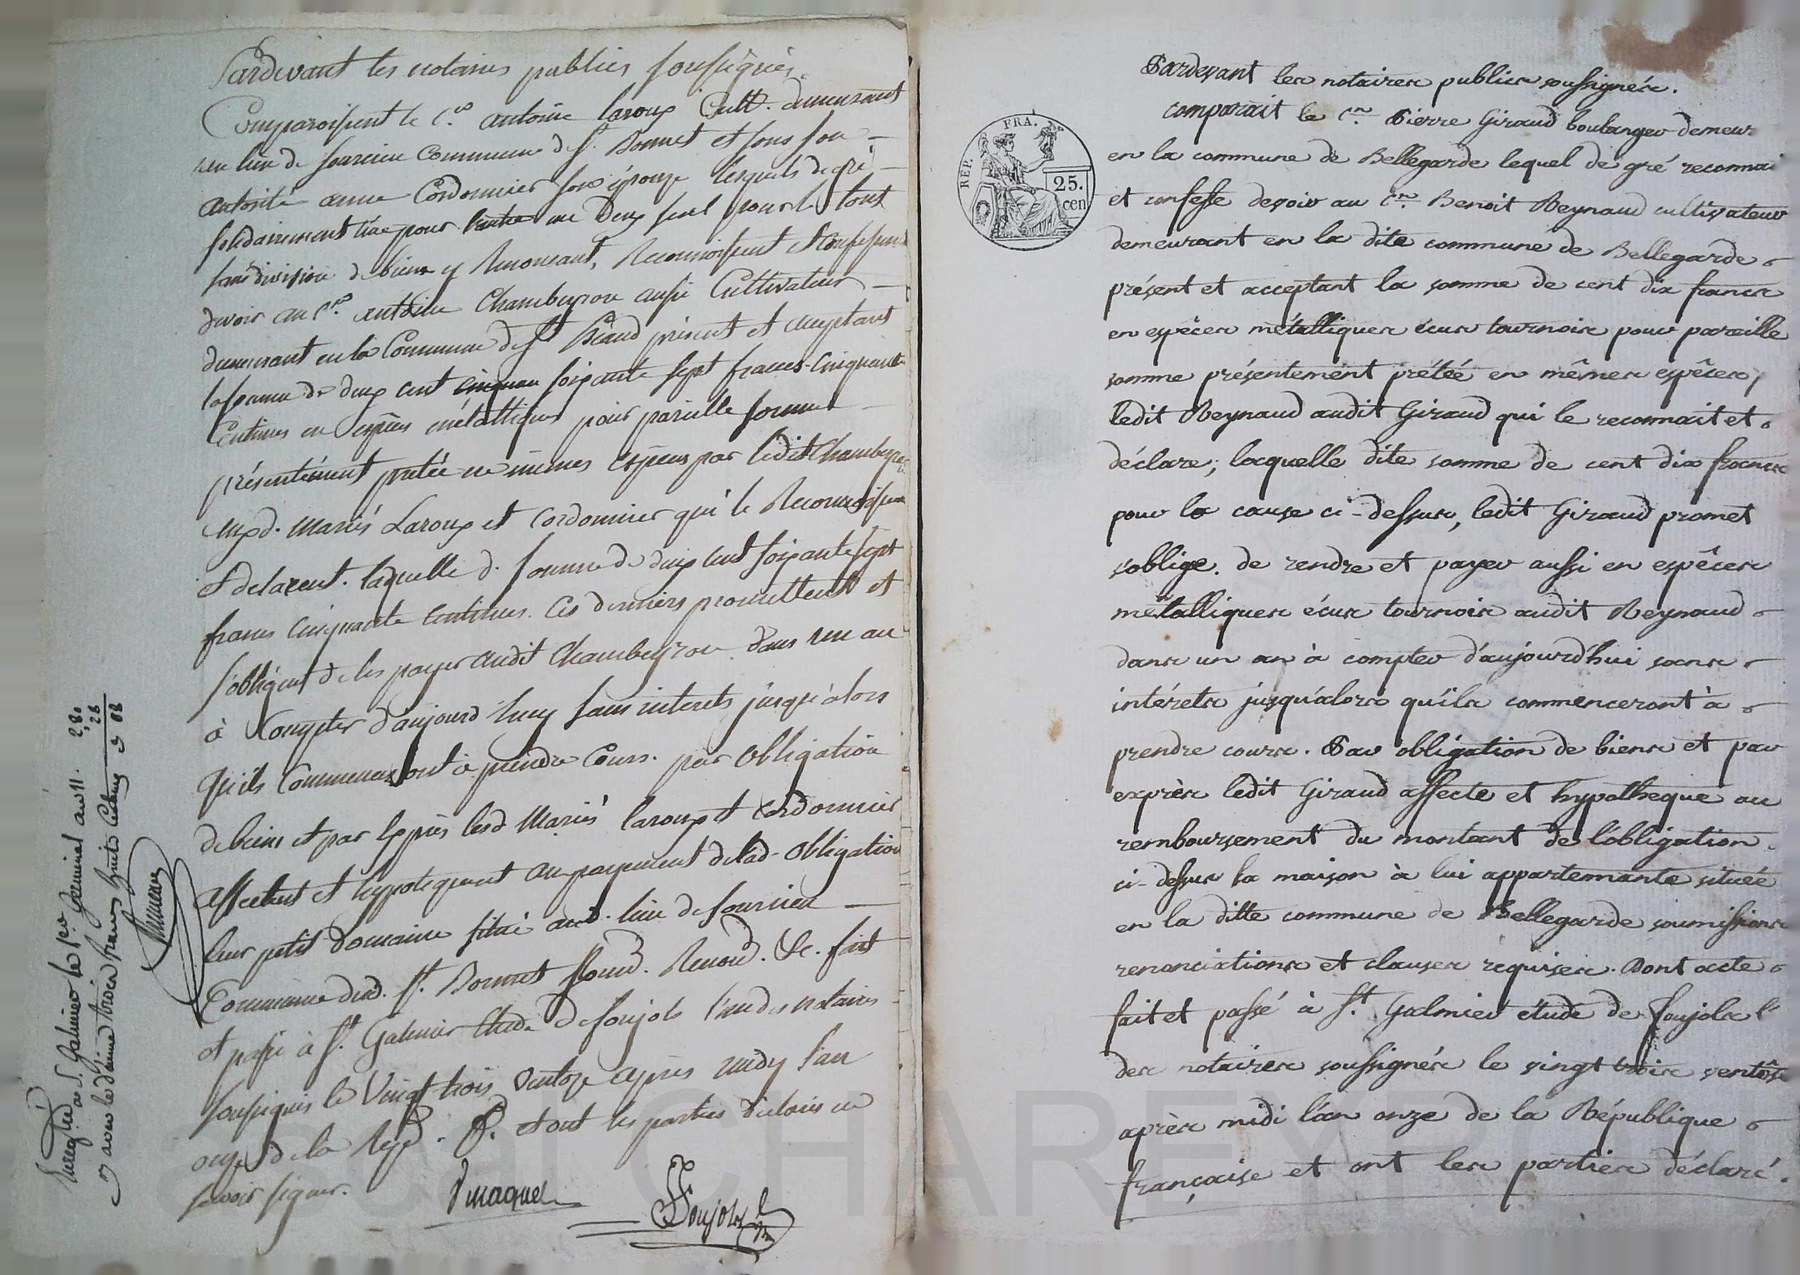 Pardevant les notaires publics soussignés.
Comparoissent le C.en antoine Laroux Cult. demeurant
au lieu de fourcieu Commune de St. Bonnet et sous son
autorité anne Cordonnier son épouse lesquels de gré
solidairement l'un pour l'autre un deux seul pour le tout
sans division de biens y Renoncant, Reconnoissent et confessent
devoir au C.en antoine Chambeyron aussi Cultivateur
demeurant en la Commune de St. Priand présent et acceptant
la somme de deux cent cinquan soixante sept francs cinquante
Centimes en espèces métalliques pour pareille somme
présentement pretée en mêmes espèces par ledit Chambeyron
auxd. Mariés Laroux et Cordonnier qui le Reconnoissent
et declarent. laquelle d. somme de deux cent soixante sept
francs cinquante centimes. Ces derniers promettent et
s'obligent de les payer audit Chambeyron dans un an
à Compter d'aujourd'huy sans interets jusqu'alors
qu'ils Commenceront à prendre Cours. par obligation
de biens et par Exprès lesd Mariés Laroux et Cordonnier
affectent et hypotequent au payement de lad. obligation
leur petit Domaine situé aud. lieu de fourcieu
Commune dud. St. Bonnet Soumd. Renond. &c. fait
et passé à St. Galmier Etude de Soujols l'un des notaires
soussignés le Vingt trois Ventoze après midy l'an
onze de la Rép. f. et ont les parties déclaré ne
savoir signer.
Soujols
Enregistré à St. Galmier le 1er Germinal an 11. 2,80
28
3 08
Pardevant les notaires publics soussignés.
comparait le C.en Pierre Giraud boulanger demeur
en la commune de Bellegarde lequel de gré reconnai
et confesse devoir au C.en Benoit Reynaud cultivateur
demeurant en la dite commune de Bellegarde
présent et acceptant la somme de cent dix francs
en espèces métalliques écus tournois pour pareille
somme présentement prétée en mêmes espèces,
ledit Reynaud audit Giraud qui le reconnait et
déclare; laquelle dite somme de cent dix francs
pour la cause ci-dessus, ledit Giraud promet
s'oblige de rendre et payer aussi en espèces
métalliques écus tournois audit Reynaud
dans un an à compter d'aujourd'hui sans
intérets jusqu'alors qu'ils commenceront à
prendre cours. Par obligation de biens et par
exprès ledit Giraud affecte et hypotheque au
remboursement du montant de l'obligation
ci-dessus la maison à lui appartenante située
en la ditte commune de Bellegarde soumissions
renonciations et clauses requises. Dont acte
fait et passé à St. Galmier étude de Soujols l'
des notaires soussignés le vingt trois ventôse
après midi l'an onze de la République
française et ont les parties déclaré.
REP. FRA.
25.
cen
CHAREYRON